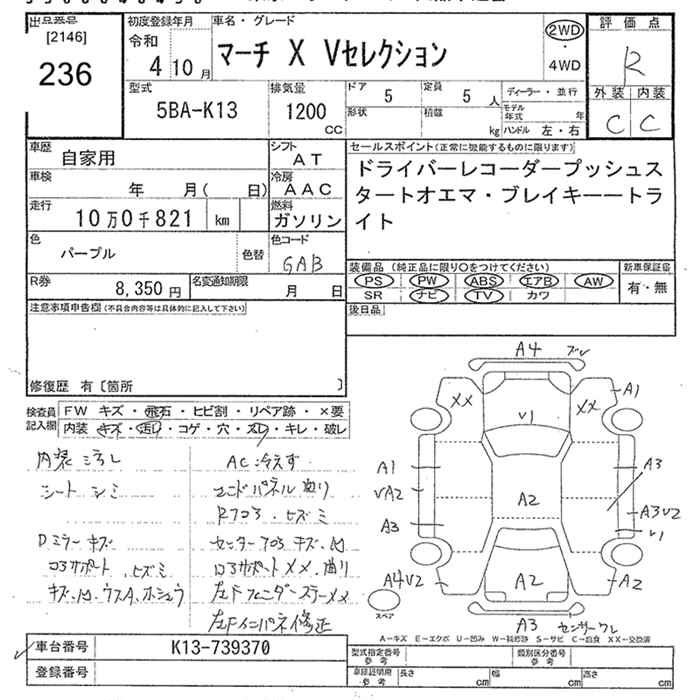 出品番号
[2146]
236
初度登録年月
令和
4 10月
車名・グレード
マーチ X Vセレクション
2WD
・
4WD
評価点
R
外装 内装
C C
型式
5BA-K13
排気量
1200
CC
ドア
5
定員
5 人
ディーラー・並行
形状
積載
kg
モデル
年式
年
ハンドル 左・右
車歴
自家用
シフト
AT
車検
年 月( 日)
冷房
AAC
走行
10万0千821 km
燃料
ガソリン
セールスポイント(正常に機能するものに限ります)
ドライバーレコーダープッシュス
タートオエマ・ブレイキーートラ
イト
色
パープル
色替
色コード
GAB
R券
8,350 円
名変通知期限
月 日
装備品(純正品に限り○をつけてください)
PS PW ABS エアB AW
SR ナビ TV カワ
新車保証書
有・無
後日品
注意事項申告欄(不具合内容等は具体的に記入して下さい)
修復歴 有〔箇所 〕
検査員
記入欄
FW キズ・飛石・ヒビ割・リペア跡・×要
内装 キズ・汚れ・コゲ・穴・スレ・キレ・破レ
内装 ゴミ
シート シミ
Dミラー キズ
コアサポート、ヒズミ
AC冷えず
エンドパネル 曲り
Rフロア、ヒズミ
センターフロア キズ、凹
コアサポート XX、曲り
左Fインパネ修正
A4
XX
XX
A1
V1
A1
VA2
A3
A2
A3
A3V2
V1
A4V2
A2
A2
スペア
A3
センサーワレ
A-キズ E-エクボ U-凹み W-補修跡 S-サビ C-腐食 XX-交換済
車台番号
K13-739370
登録番号
型式指定番号
参考
類別区分番号
参考
車庫証明用
参考
長さ cm
幅 cm
高さ cm